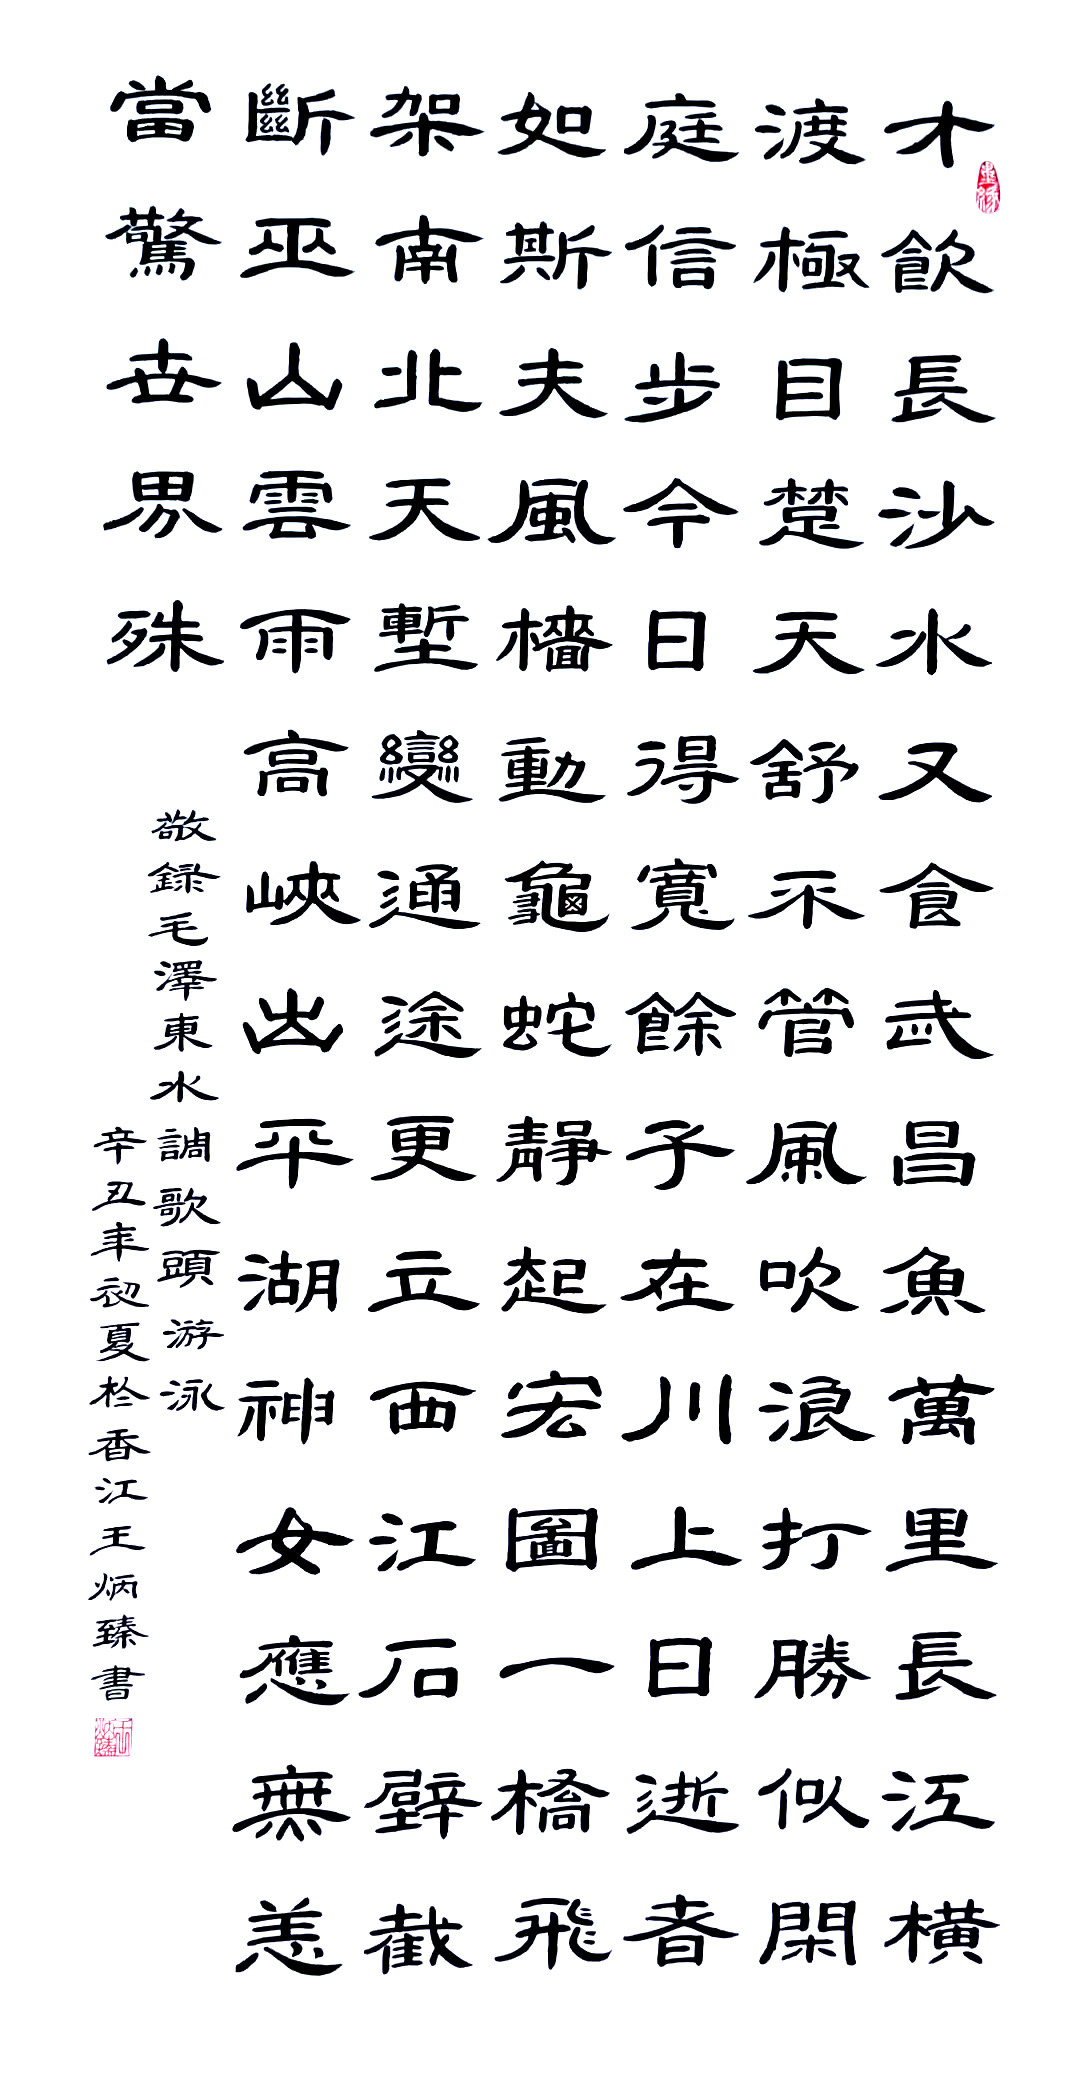 才飲長沙水又食武昌魚萬里長江橫
渡極目楚天舒不管風吹浪打勝似閑
庭信步今日得寬餘子在川上曰逝者
如斯夫風檣動龜蛇靜起宏圖一橋飛
架南北天塹變通途更立西江石壁截
斷巫山雲雨高峽出平湖神女應無恙
當驚世界殊
敬録毛澤東水調歌頭游泳
辛丑年初夏於香江王炳臻書